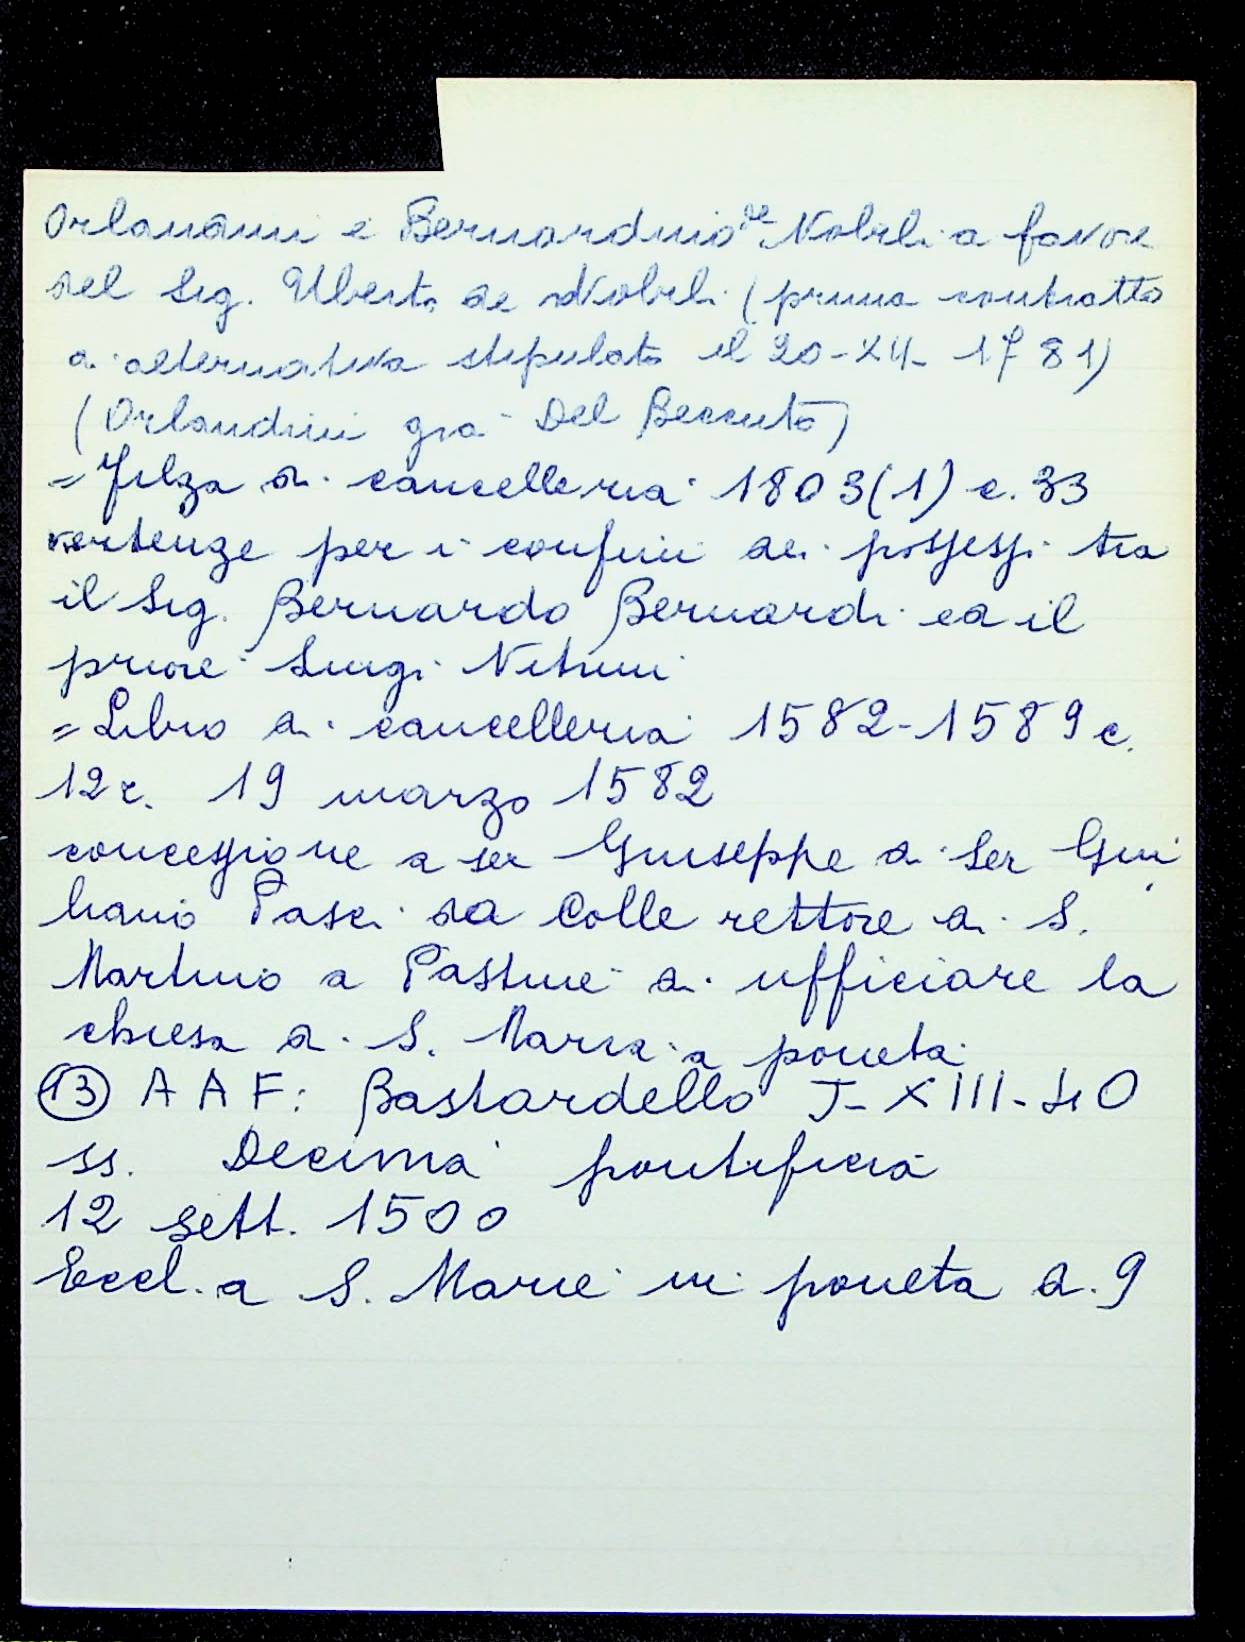 Orlandini e Bernardino de Nobili a favore
del Sig. Uberto de Nobili (primo contratto
di alternativa stipulato il 20-XII-1781)
(Orlandini già Del Beccuto)
= Filza di cancelleria 1803(1) c. 33
vertenze per i confini dei possessi tra
il Sig. Bernardo Bernardi ed il
priore Luigi Vetrini
= Libro di cancelleria 1582-1589 c.
12r. 19 marzo 1582
concessione a ser Giuseppe di Ser Giu
liano Pasci da Colle rettore di S.
Martino a Pastine di ufficiare la
chiesa di S. Maria a poneta
(13) AAF: Bastardello I-XIII-40
ss. Decima pontificia
12 sett. 1500
Eccl. a S. Marie in poneta d. 9